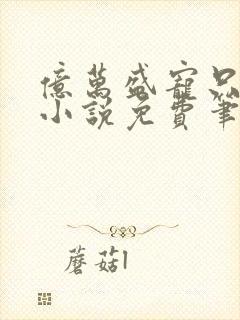 億萬盛寵只
小說免費筆
蘑菇1